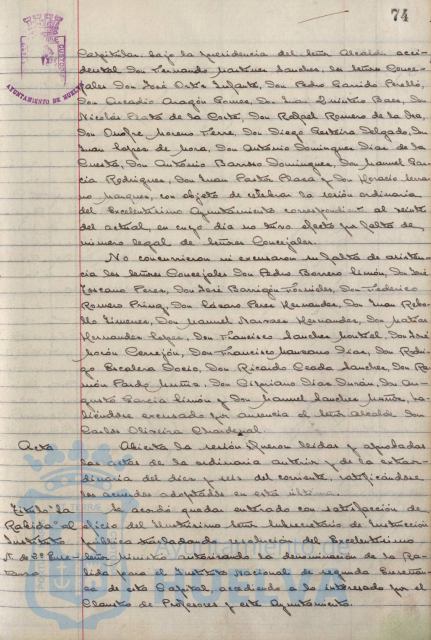 74
AYUNTAMIENTO DE HUELVA
Capitular, bajo la presidencia del señor Alcalde acci-
dental Don Fernando Martínez Sánchez, los señores Conce-
jales Don José Ortiz Infante, Don Pedro Garrido Perelló,
Don Arcadio Aragón Gómez, Don Juan Quintero Baez, Don
Nicolás Prats de la Corte, Don Rafael Romero de la
Don Onofre Moreno Don Diego Delgado, Don
Juan López de Mora, Don Antonio Domínguez Díaz de la
Cuesta, Don Antonio Barroso Domínguez, Don Manuel Gar-
cía Rodríguez, Don Juan Pastor Plaza y Don Horacio
no Márquez, con objeto de celebrar la sesión ordinaria
del Excelentísimo Ayuntamiento correspondiente al veinte
del actual, en cuyo día no tuvo efecto por falta de
número legal de señores Concejales.
No concurrieron ni excusaron su falta de asisten-
cia los señores Concejales Don Pedro Borrero Limón, Don José
Toscano Pérez, Don José Barrigón Don Federico
Romero Don Lázaro Pérez Hernández, Don Juan Rebo-
llo Jiménez, Don Manuel Narváez Hernández, Don Matías
Hernández López, Don Francisco Sánchez Don José
Morón Cerejón, Don Francisco Manzano Díaz, Don Rodri-
go Escalera Don Ricardo Sánchez, Don Ra-
món Pardo Muñiz, Don Cipriano Díaz Durán, Don Au-
gusto García Limón y Don Manuel Sánchez Muñoz, ha-
biéndose excusado por ausencia el señor Alcalde Don
Carlos Oliveira Chardenal
Acta Abierta la sesión, fueron leídas y aprobadas
las actas de la ordinaria anterior y de la extraor-
dinaria del diez y seis del corriente, ratificándose
los acuerdos adoptados en esta última.
Titula "La Se acordó quedar enterado con satisfacción de
Rábida" al oficio del Ilustrísimo señor Subsecretario de Instrucción
Instituto pública trasladando resolución del Excelentísimo
N. de 2ª Ense- señor Ministro autorizando la denominación de La Rá-
ñanza bida para el Instituto Nacional de segunda Enseñan-
za de esta Capital, accediendo a lo interesado por el
Claustro de Profesores y este Ayuntamiento.
HUELVA